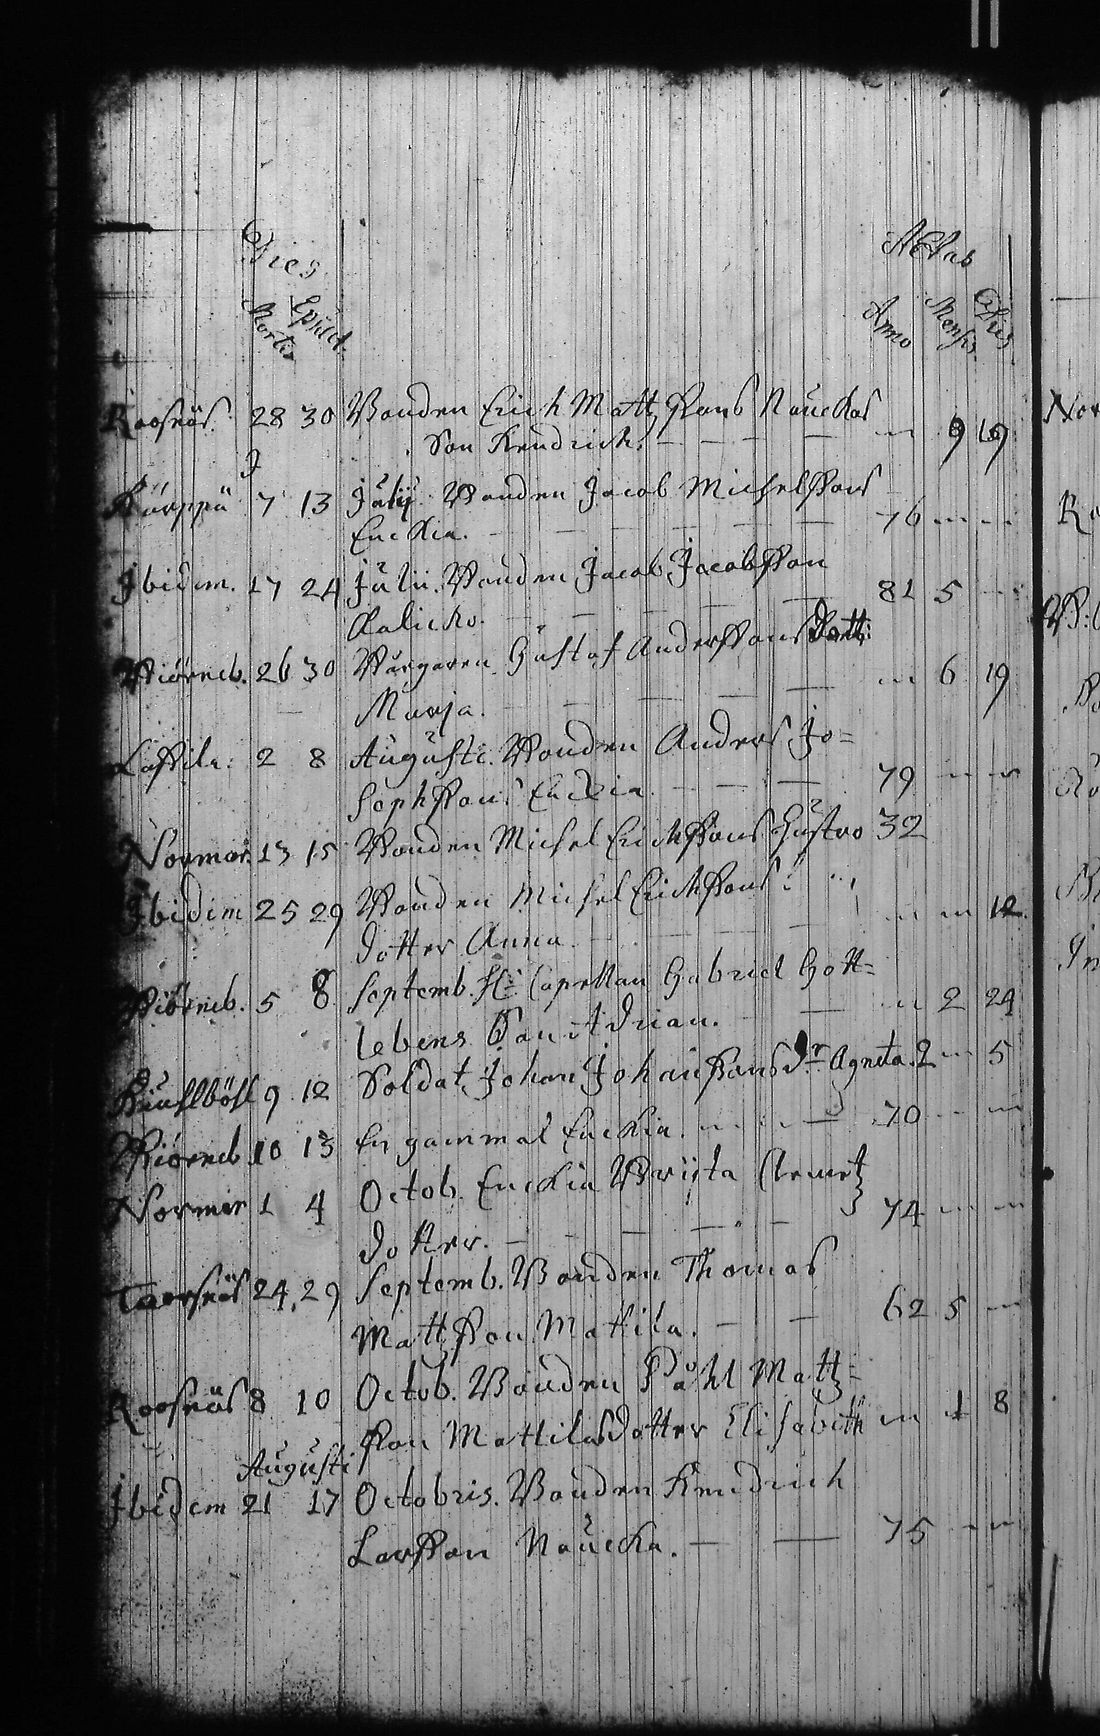 Dies
Mortis Sepult.
Aetas
Anno Mensis Dies
Roosnäs 28 30 Bonden Erich Mattssons Nauckas
Son Hendrich. 9 19
Kärppä 7 13 Julij. Bonden Jacob Michelssons
Enckia. 76
Ibidem. 17 24 Julii. Bonden Jacob Jacobsson
81 5
Biörneb. 26 30 Borgaren Gustaf Anderssons Dott:
Maria. 6 19
Lassila: 2 8 Augusti. Bonden Anders Jo=
sephssons Enckia 79
Normar. 13 15 Bonden Michel Erichssons Hustro 32
Ibidem 25 29 Bonden Michel Erichssons
dotter Anna 12
Biörneb. 5 8 Septemb. Hr Capellan Gabriel Gott=
lebens Son Adrian. 2 24
9 12 Soldat Johan Johanssons dr Agneta. 2 5
Biörneb. 10 13 En gammal Enckia. 70
Normar 1 4 Octob. Enckia Brijta Clemetz
dotter. 74
24 29 Septemb. Bonden Thomas
Mattsson Mattila. 62 5
Roosnäs 8 10 Octob. Bonden Påhl Matts=
son Mattilas dotter Elisabeth 1 8
Augusti
Ibidem 21 17 Octobris. Bonden Hendrich
Larsson Naucka. 75